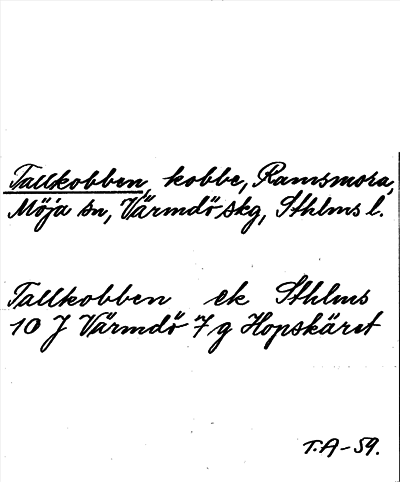 Tallkobben, kobbe, Ramsmora,
Möja sn, Värmdö skg, Sthlms l.
Tallkobben ek Sthlms
10 J Värmdö 7 g Hopskäret
T.A-59.